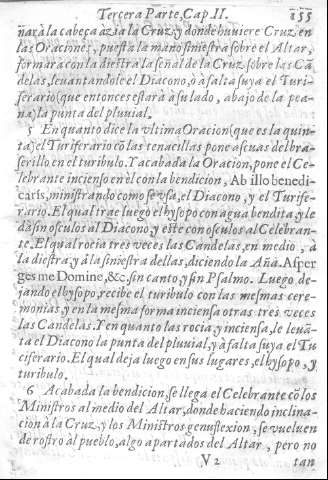 Tercera Parte, Cap. II. 155
ñarà la cabeça azia la Cruz, y donde huuiere Cruz en
las Oraciones, puesta la mano siniestra sobre el Altar,
formarà con la diestra la señal de la Cruz sobre las Cã
delas, leuantandole el Diacono, ò à falta suya el Turi-
ferario (que entonces estarà a su lado, abajo de la pea-
na) la punta del pluuial.
5 En quanto dice la vltima Oracion (que es la quin-
ta) el Turiferario cõ las tenacillas pone ascuas del bra-
serillo en el turibulo. Y acabada la Oracion, pone el Ce-
lebrante incienso en èl con la bendicion, Ab illo benedi-
caris, ministrando como se vsa, el Diacono, y el Turife-
rario. El qual trae luego el hysopo con agua bendita, y le
dà sin osculos al Diacono, y este con osculos al Celebran-
te. El qual rocia tres veces las Candelas, en medio, à
la diestra, y à la siniestra dellas, diciendo la Aña. Asper
ges me Domine, &c. sin canto, y sin Psalmo. Luego de-
jando el hysopo, recibe el turibulo con las mesmas cere-
monias, y en la mesma forma inciensa otras tres veces
las Candelas. Y en quanto las rocia, y inciensa, le leuã-
ta el Diacono la punta del pluuial, y à falta suya el Tu
riferario. El qual deja luego en sus lugares, el hysopo, y
turibulo.
6 Acabada la bendicion, se llega el Celebrante cõ los
Ministros al medio del Altar, donde haciendo inclina-
cion à la Cruz, y los Ministros genuflexion, se vueluen
de rostro al pueblo, algo apartados del Altar, pero no
V 2 tan